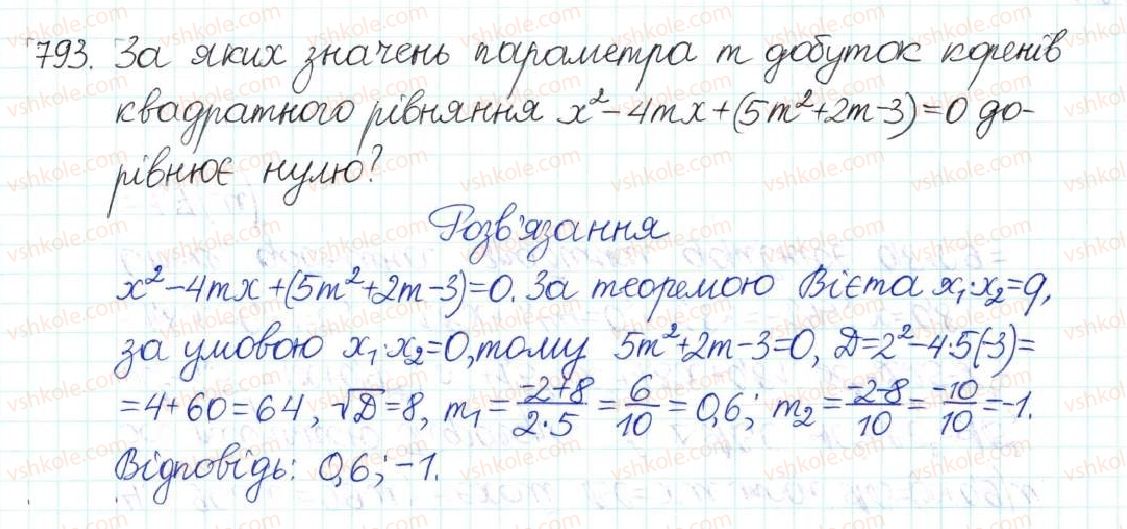 793. За яких значень параметра m добуток коренів
квадратного рівняння x²-4mx+(5m²+2m-3)=0 до-
рівнює нулю?
Розв'язання
x²-4mx+(5m²+2m-3)=0. За теоремою Вієта x₁·x₂=q,
за умовою x₁·x₂=0, тому 5m²+2m-3=0, D=2²-4·5(-3)=
=4+60=64, √D=8, m₁=(-2+8)/(2·5)=6/10=0,6; m₂=(-2-8)/10=-10/10=-1.
Відповідь: 0,6; -1.
vshkole.com